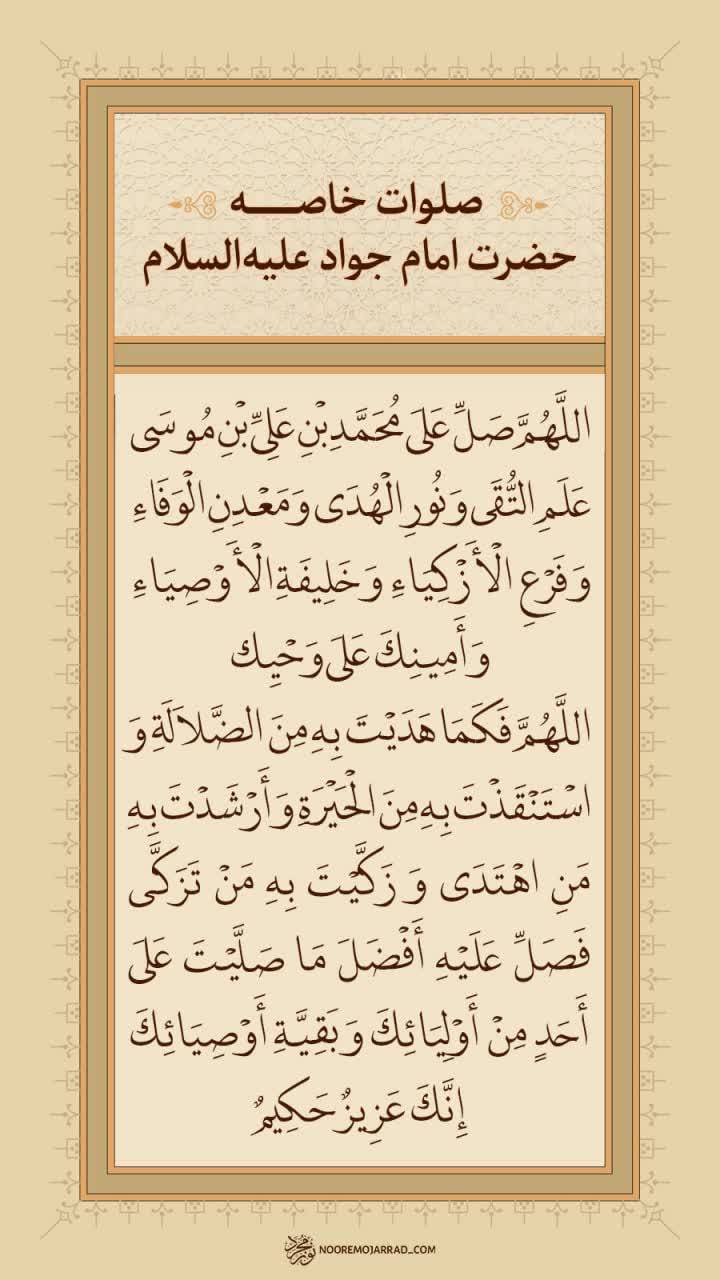 صلوات خاصـــه
حضرت امام جواد علیه‌السلام
اللَّهُمَّ صَلِّ عَلَى مُحَمَّدِ بْنِ عَلِيِّ بْنِ مُوسَى
عَلَمِ التُّقَى وَ نُورِ الْهُدَى وَ مَعْدِنِ الْوَفَاءِ
وَ فَرْعِ الْأَزْكِيَاءِ وَ خَلِيفَةِ الْأَوْصِيَاءِ
وَ أَمِينِكَ عَلَى وَحْيِك
اللَّهُمَّ فَكَمَا هَدَيْتَ بِهِ مِنَ الضَّلَالَةِ وَ
اسْتَنْقَذْتَ بِهِ مِنَ الْحَيْرَةِ وَ أَرْشَدْتَ بِهِ
مَنِ اهْتَدَى وَ زَكَّيْتَ بِهِ مَنْ تَزَكَّى
فَصَلِّ عَلَيْهِ أَفْضَلَ مَا صَلَّيْتَ عَلَى
أَحَدٍ مِنْ أَوْلِيَائِكَ وَ بَقِيَّةِ أَوْصِيَائِكَ
إِنَّكَ عَزِيزٌ حَكِيمٌ
نور مجرد NOOREMOJARRAD_COM